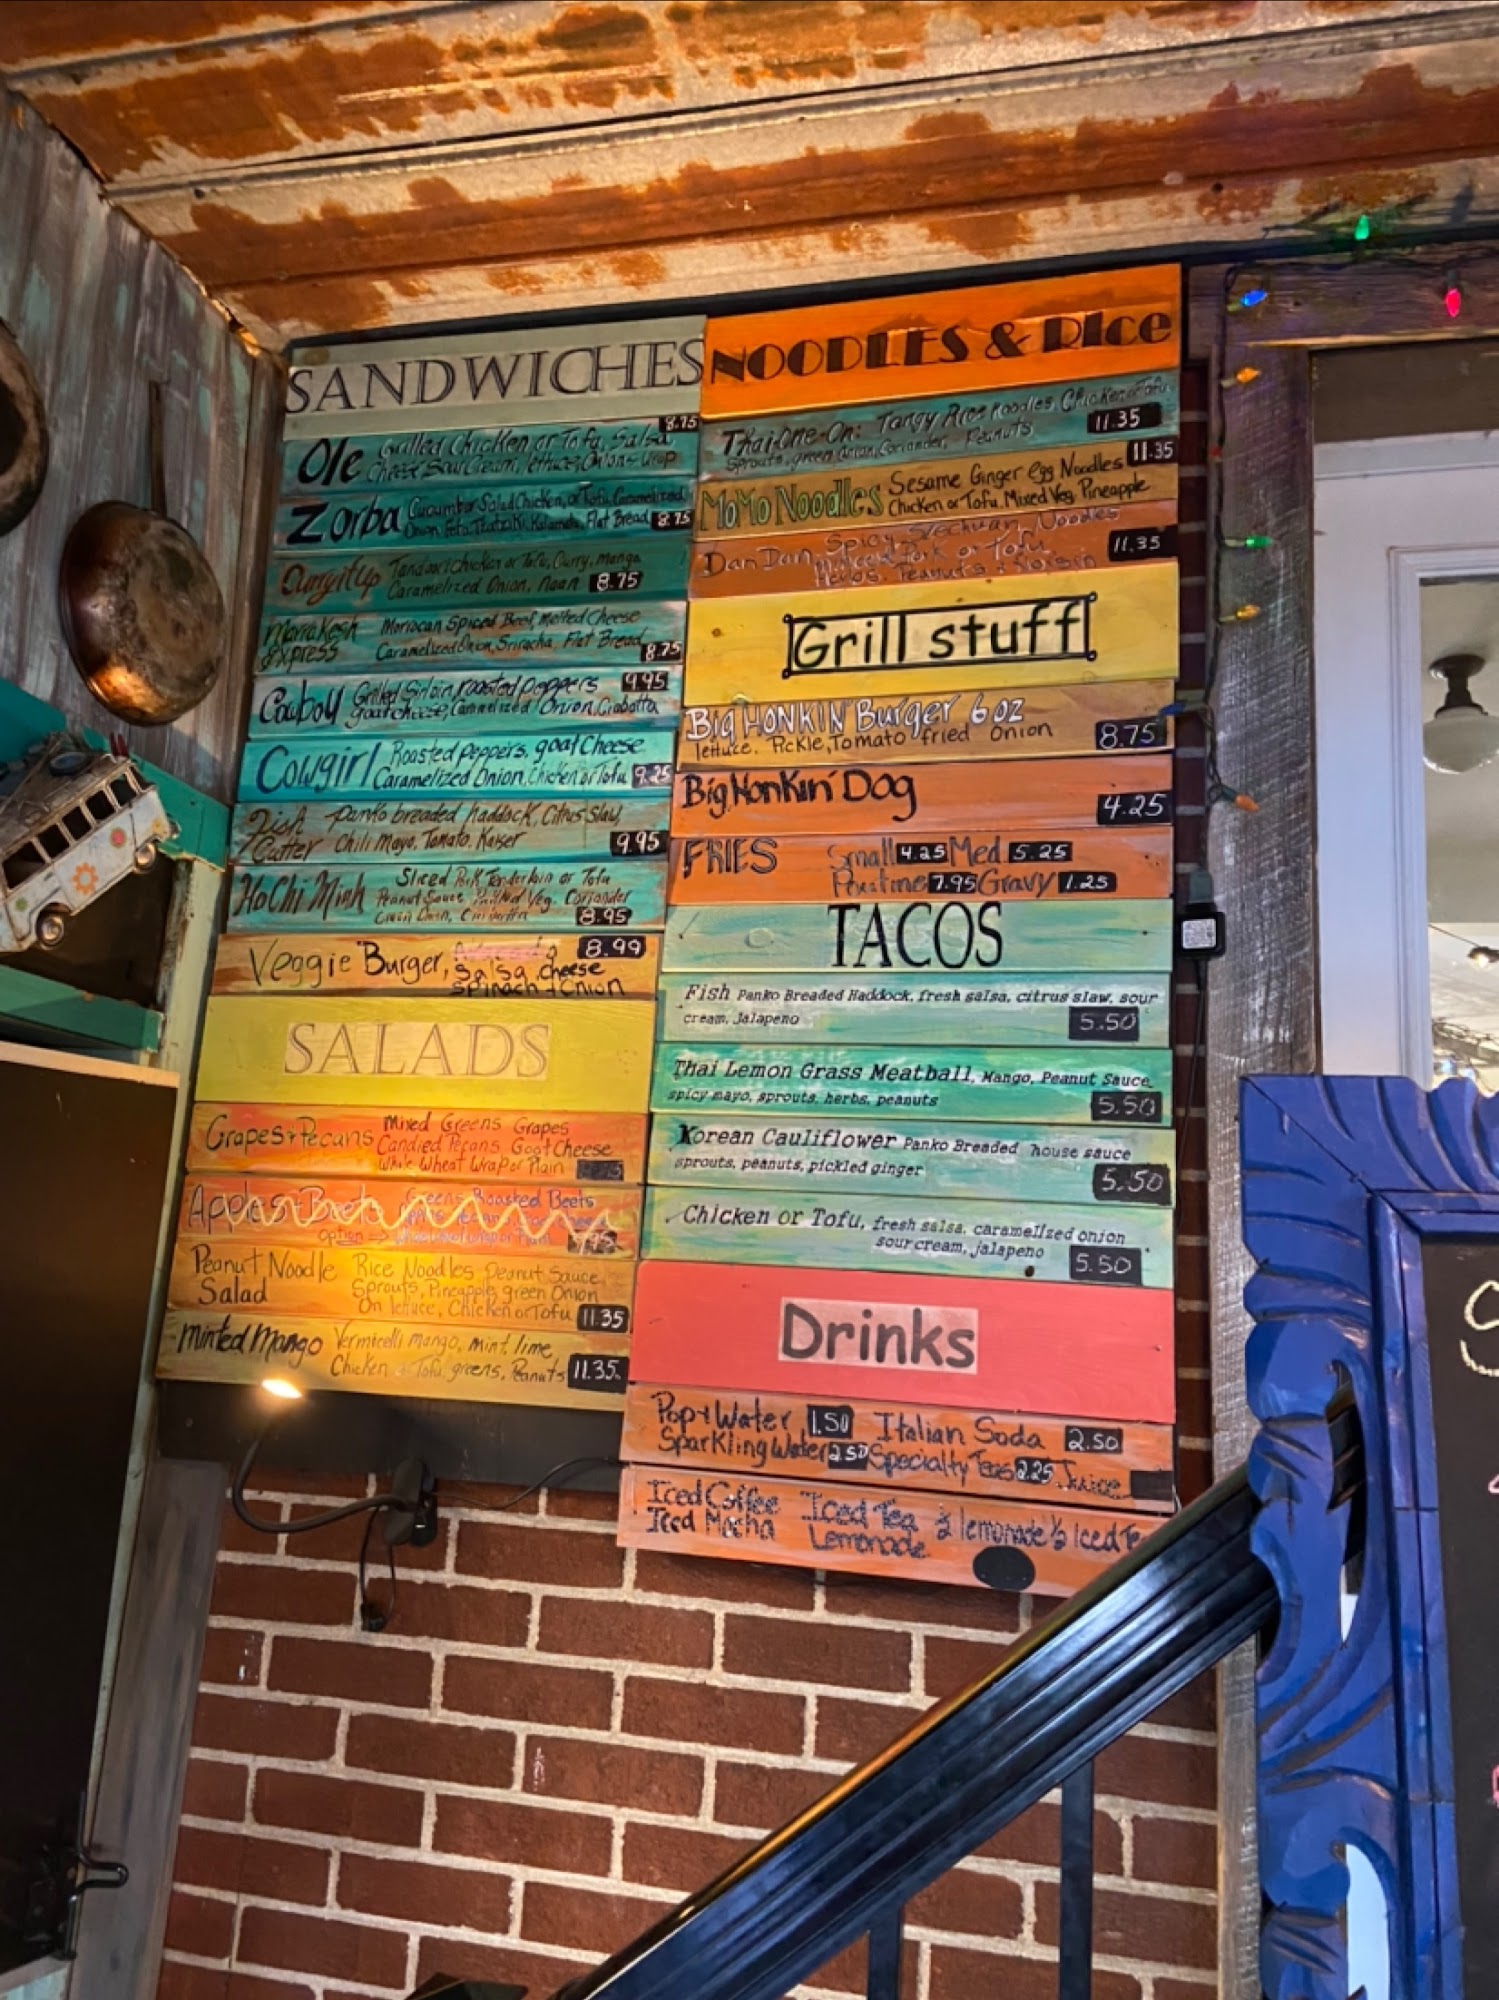 SANDWICHES
8.75
Ole Grilled Chicken or Tofu, Salsa
Cheese, Sour Cream, lettuce, Onions Wrap
Zorba Cucumber Salad Chicken, or Tofu, Caramelized
Onion, Feta, Tzatziki, Kalamata, Flat Bread 8.75
Curry it Up Tandoori chicken or Tofu, Curry, mango
Caramelized Onion, Naan 8.75
Marrakesh Express Moroccan Spiced Beef, Melted Cheese
Caramelized Onion, Sriracha, Flat Bread 8.75
Cowboy Grilled Sirloin, roasted peppers 9.95
goat cheese, Caramelized Onion, Ciabatta
Cowgirl Roasted peppers, goat Cheese
Caramelized Onion, Chicken or Tofu 9.25
Fish Panko breaded haddock, Citrus Slaw,
Cutter Chili Mayo, Tomato, Kaiser 9.95
Ho Chi Minh Sliced Pork Tenderloin or Tofu
Peanut Sauce Pickled Veg. Coriander
8.95
Veggie Burger, 8.99
Salsa, cheese
Spinach + Onion
SALADS
Grapes + Pecans Mixed Greens Grapes
Candied Pecans Goat Cheese
Whole Wheat Wrap or Plain
Apples + Beets Greens Roasted Beets
Option →
Peanut Noodle Rice Noodles Peanut Sauce,
Salad Sprouts, Pineapple, green Onion
On lettuce, Chicken or Tofu 11.35
Minted Mango Vermicelli mango, mint, lime,
Chicken or Tofu, greens, Peanuts 11.35
NOODLES & RIce
Thai-One-On: Tangy Rice noodles, Chicken or Tofu
Sprouts, green Onion, Coriander, Peanuts 11.35
MoMo Noodles Sesame Ginger egg Noodles 11.35
Chicken or Tofu, Mixed Veg, Pineapple
Dan Dan Spicy Szechuan Noodles
Minced Pork or Tofu 11.35
Herbs, Peanuts + Hoisin
Grill stuff
Big HONKIN' Burger 6 oz
lettuce, Pickle, Tomato fried Onion 8.75
Big Honkin' Dog
4.25
FRIES Small 4.25 Med 5.25
Poutine 7.95 Gravy 1.25
TACOS
Fish Panko Breaded Haddock, fresh salsa, citrus slaw, sour
cream, jalapeno 5.50
Thai Lemon Grass Meatball, Mango, Peanut Sauce
spicy mayo, sprouts, herbs, peanuts 5.50
Korean Cauliflower Panko Breaded house sauce
sprouts, peanuts, pickled ginger 5.50
Chicken or Tofu, fresh salsa, caramelized onion
sour cream, jalapeno 5.50
Drinks
Pop + Water 1.50 Italian Soda 2.50
Sparkling Water 2.50 Specialty Teas 2.25 Juice
Iced Coffee Iced Tea ½ lemonade ½ Iced Te
Iced Mocha Lemonade